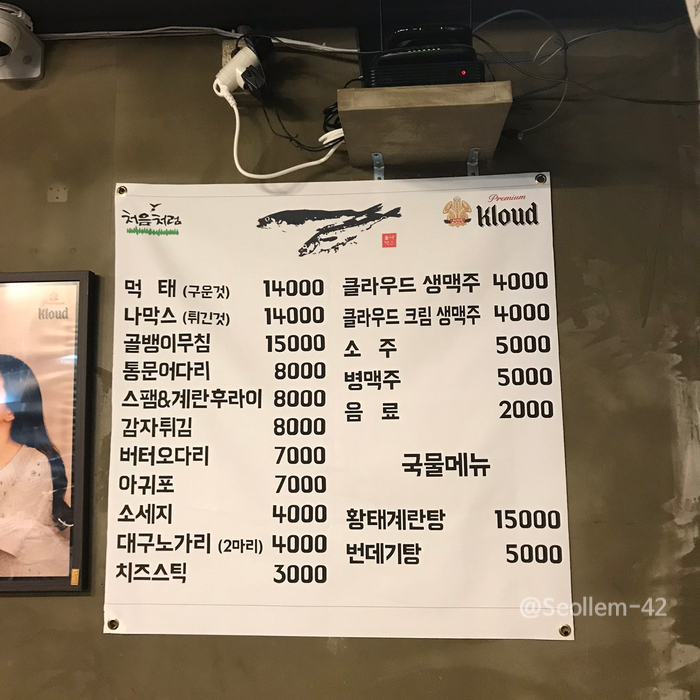 처음처럼
Premium
Kloud
먹 태 (구운것) 14000
나막스 (튀긴것) 14000
골뱅이무침 15000
통문어다리 8000
스팸&계란후라이 8000
감자튀김 8000
버터오다리 7000
아귀포 7000
소세지 4000
대구노가리 (2마리) 4000
치즈스틱 3000
클라우드 생맥주 4000
클라우드 크림 생맥주 4000
소 주 5000
병맥주 5000
음 료 2000
국물메뉴
황태계란탕 15000
번데기탕 5000
Kloud
@Seollem-42